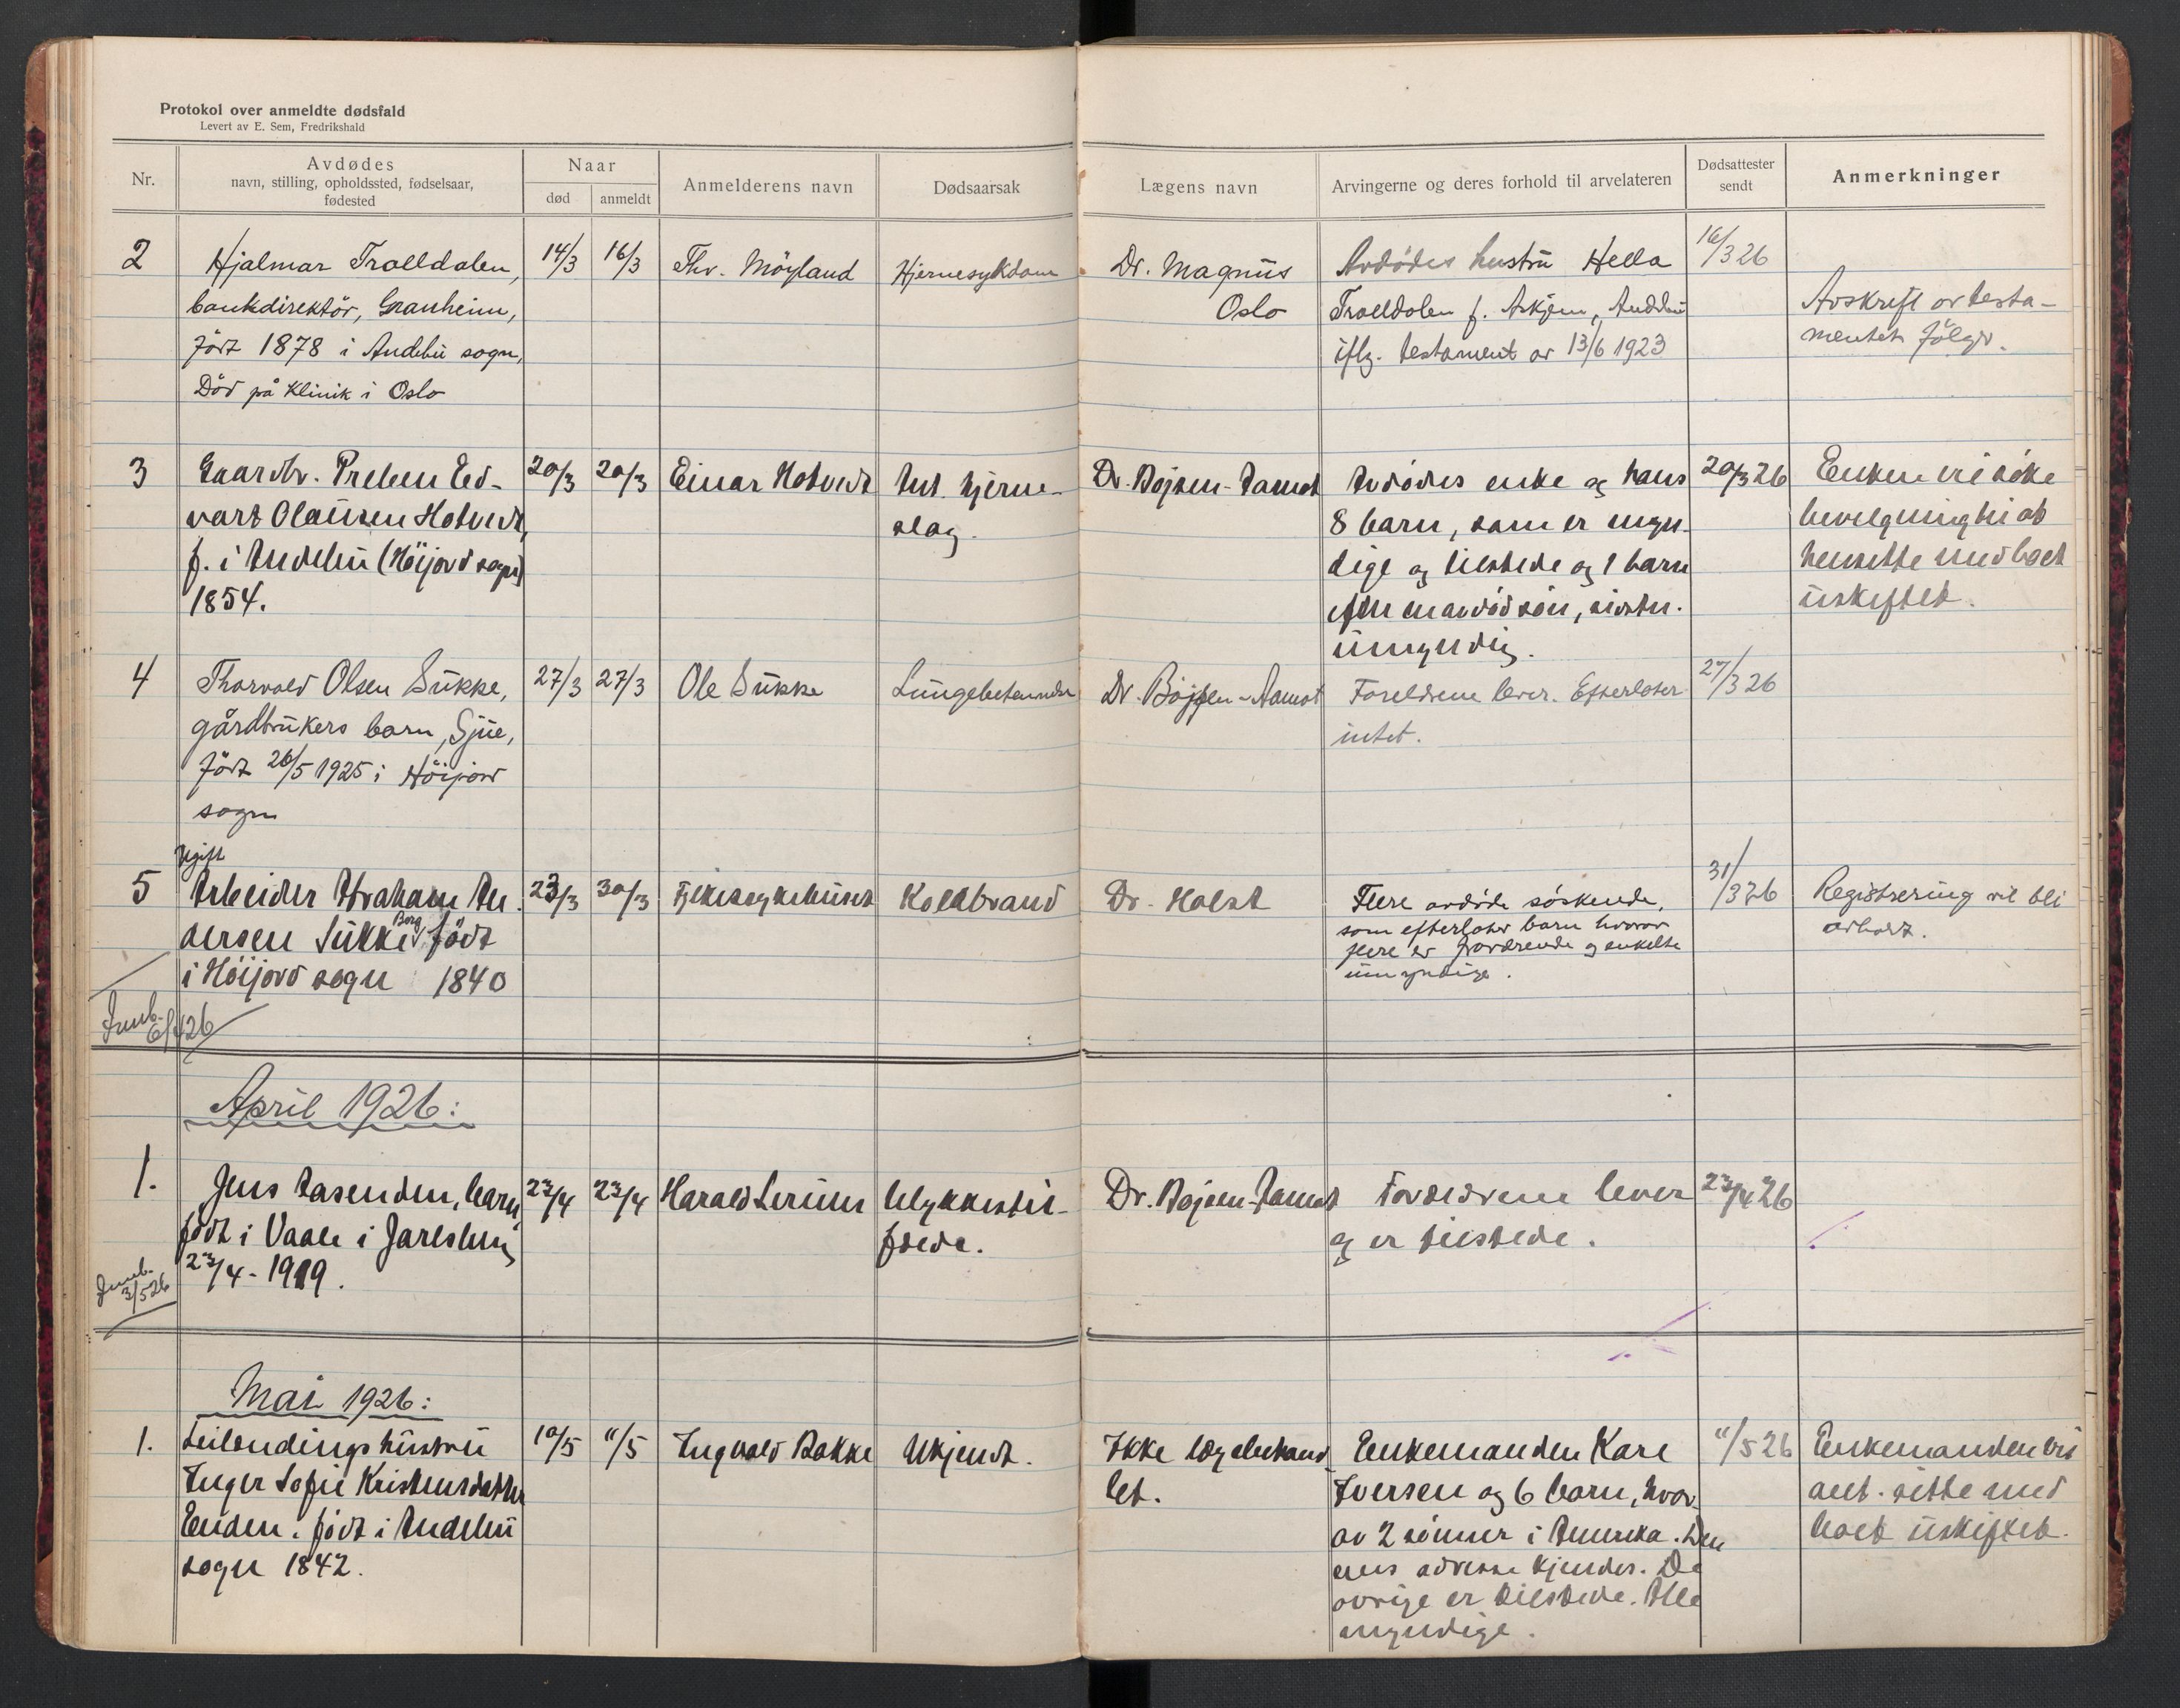 Protokol over anmeldte dødsfald
Levert av E. Sem, Fredrikshald
Nr.
Avdødes
navn, stilling, opholdssted, fødselsaar,
fødested
Naar
død
anmeldt
Anmelderens navn
Dødsaarsak
Lægens navn
Arvingerne og deres forhold til arvelateren
Dødsattester
sendt
Anmerkninger
2
Hjalmar Trolldalen,
bankdirektör, Granheim,
född 1878 i Andebu sogn,
Död på klinik i Oslo
14/3
16/3
Thv. Möyland
Hjernesykdom
Dr. Magnus
Oslo
Avdödes hustru Hella
Trolldalen f. Askjem, Andebu
iflg. testament av 13/6 1923
16/3 26
Avskrift av testa-
mentet fölger.
3
Gaardbr. Preben Ed-
vart Olausen Hotvedt,
f. i Andebu (Höijord sogn)
1854.
20/3
20/3
Einar Hotvedt
Ant. hjerne-
slag.
Dr. Bojsen-Aamot
Avdödes enke og hans
8 barn, som er myn-
dige og tilstede og 1 barn
efter en avdöd sön, sidstn.
umyndig.
20/3 26
Enken vil söke
bevilgning til at
hensitte med boet
uskiftet.
4
Thorvald Olsen Sukke,
gårdbrukers barn, Gjue,
född 26/5 1925 i Höijord
sogn
27/3
27/3
Ole Sukke
Lungebetændelse
Dr. Bojsen-Aamot
Foreldrene lever. Efterlater
intet.
27/3 26
5
Ugift
Arbeider Abraham An-
dersen Sukke Borg, född
i Höijord sogn 1840
23/3
30/3
Fylkessykehuset
Koldbrand
Dr. Holst
Flere avdöde söskende,
som efterlater barn hvorav
flere er fraværende og enkelte
umyndige.
31/3 26
Registrering vil bli
avholdt.
Innb.
6/4 26
April 1926:
1.
Jens Aasenden, barn,
född i Vaale i Jarlsberg
23/4 - 1919.
23/4
23/4
Harald Lerum
Ulykkestil-
fælde.
Dr. Bojsen-Aamot
Forældrene lever
og er tilstede.
23/4 26
Innb.
3/5 26
Mai 1926:
1.
Leilendingshustru
Inger Sofie Kristensdatter
Enden. född i Andebu
sogn 1842.
10/5
11/5
Ingvald Bakke
Ukjendt.
Ikke lægebehand
let.
Enkemanden Karl
Iversen og 6 barn, hvor-
av 2 sönner i Amerika. Den
enes adresse kjendes. De
övrige er tilstede. Alle
myndige.
11/5 26
Enkemanden vil
ant. sitte med
boet uskiftet.